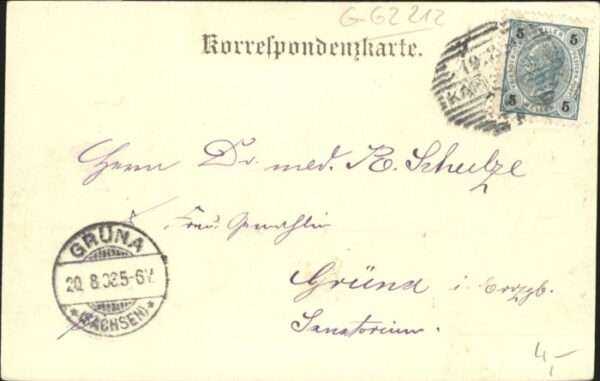 G-62 212
Korrespondenzkarte.
5 HELLER 5
5 5
19.8
Herrn Dr. med. R. Schulze
& Frau Gemahlin
Grüna i. Erzgb.
Sanatorium.
GRÜNA
20.8.03.5-6N.
*(SACHSEN)*
4,-